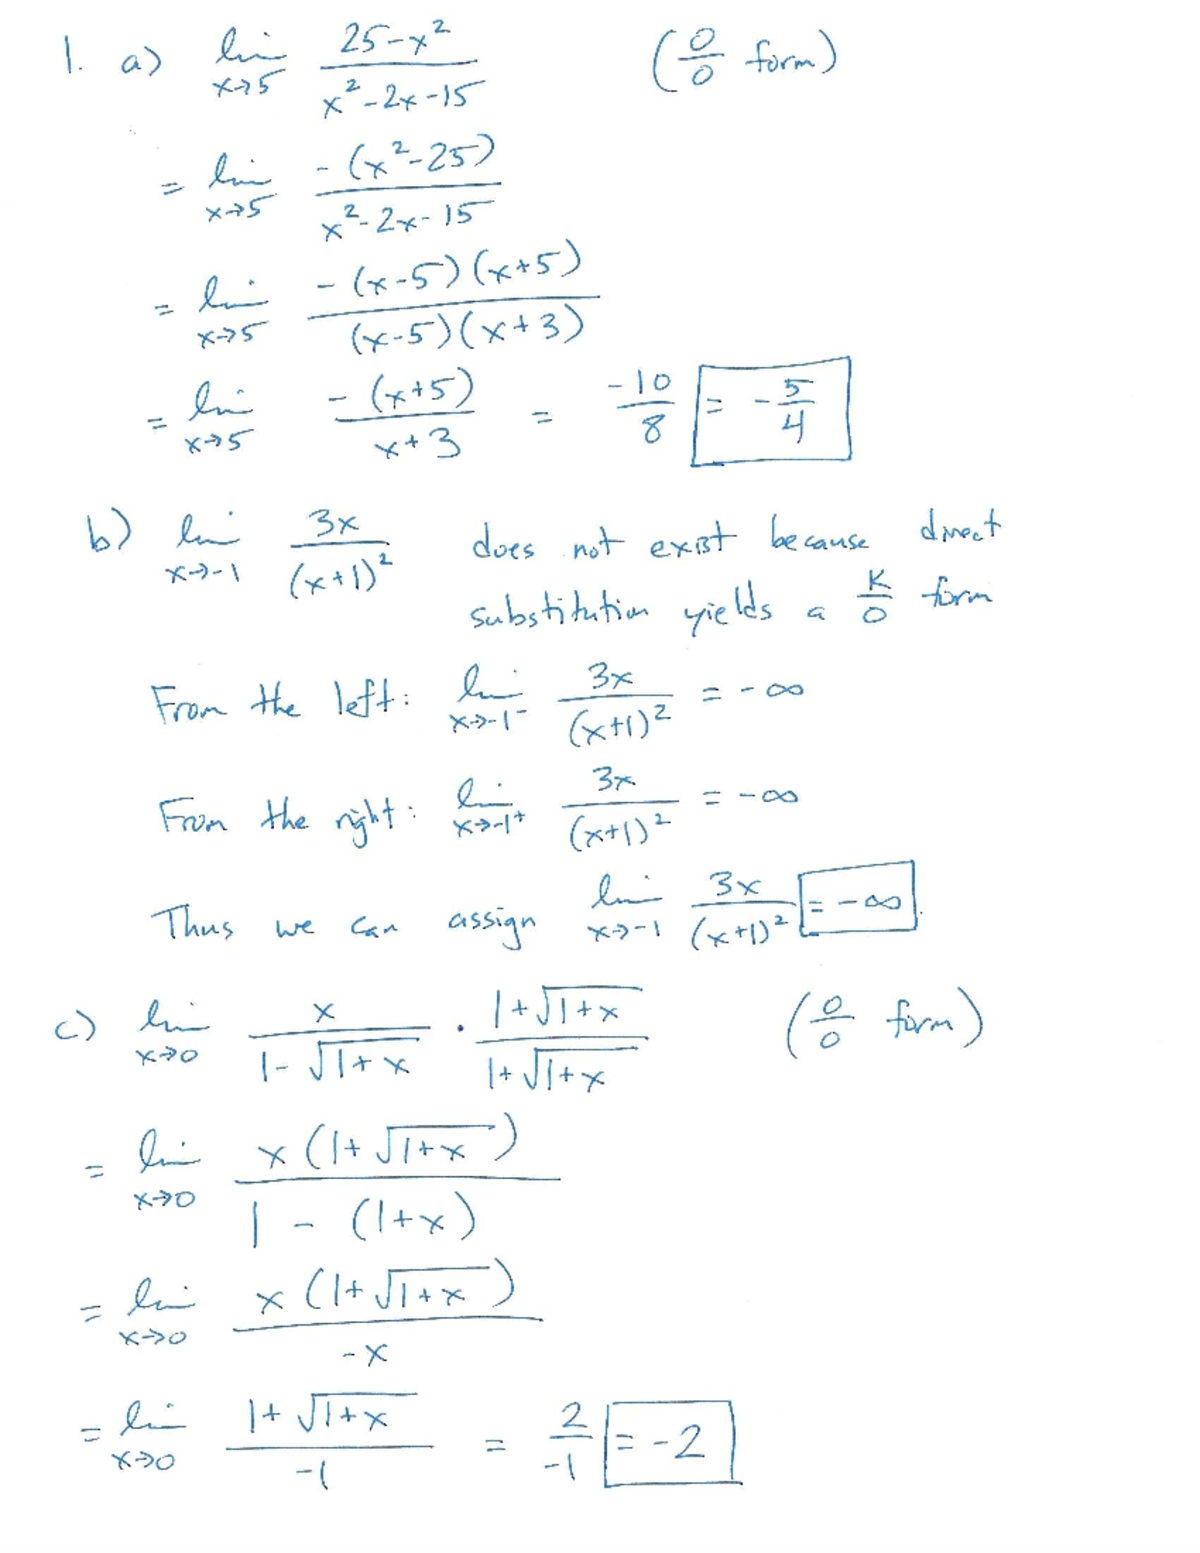 1. a) lim x→5 (25-x²)/(x²-2x-15) (0/0 form)
= lim x→5 -(x²-25)/(x²-2x-15)
= lim x→5 -(x-5)(x+5)/((x-5)(x+3))
= lim x→5 -(x+5)/(x+3) = -10/8 = -5/4
b) lim x→-1 3x/(x+1)² does not exist because direct
substitution yields a K/0 form
From the left: lim x→-1⁻ 3x/(x+1)² = -∞
From the right: lim x→-1⁺ 3x/(x+1)² = -∞
Thus we can assign lim x→-1 3x/(x+1)² = -∞.
c) lim x→0 x/(1-√(1+x)) · (1+√(1+x))/(1+√(1+x)) (0/0 form)
= lim x→0 x(1+√(1+x))/(1-(1+x))
= lim x→0 x(1+√(1+x))/(-x)
= lim x→0 (1+√(1+x))/(-1) = 2/(-1) = -2